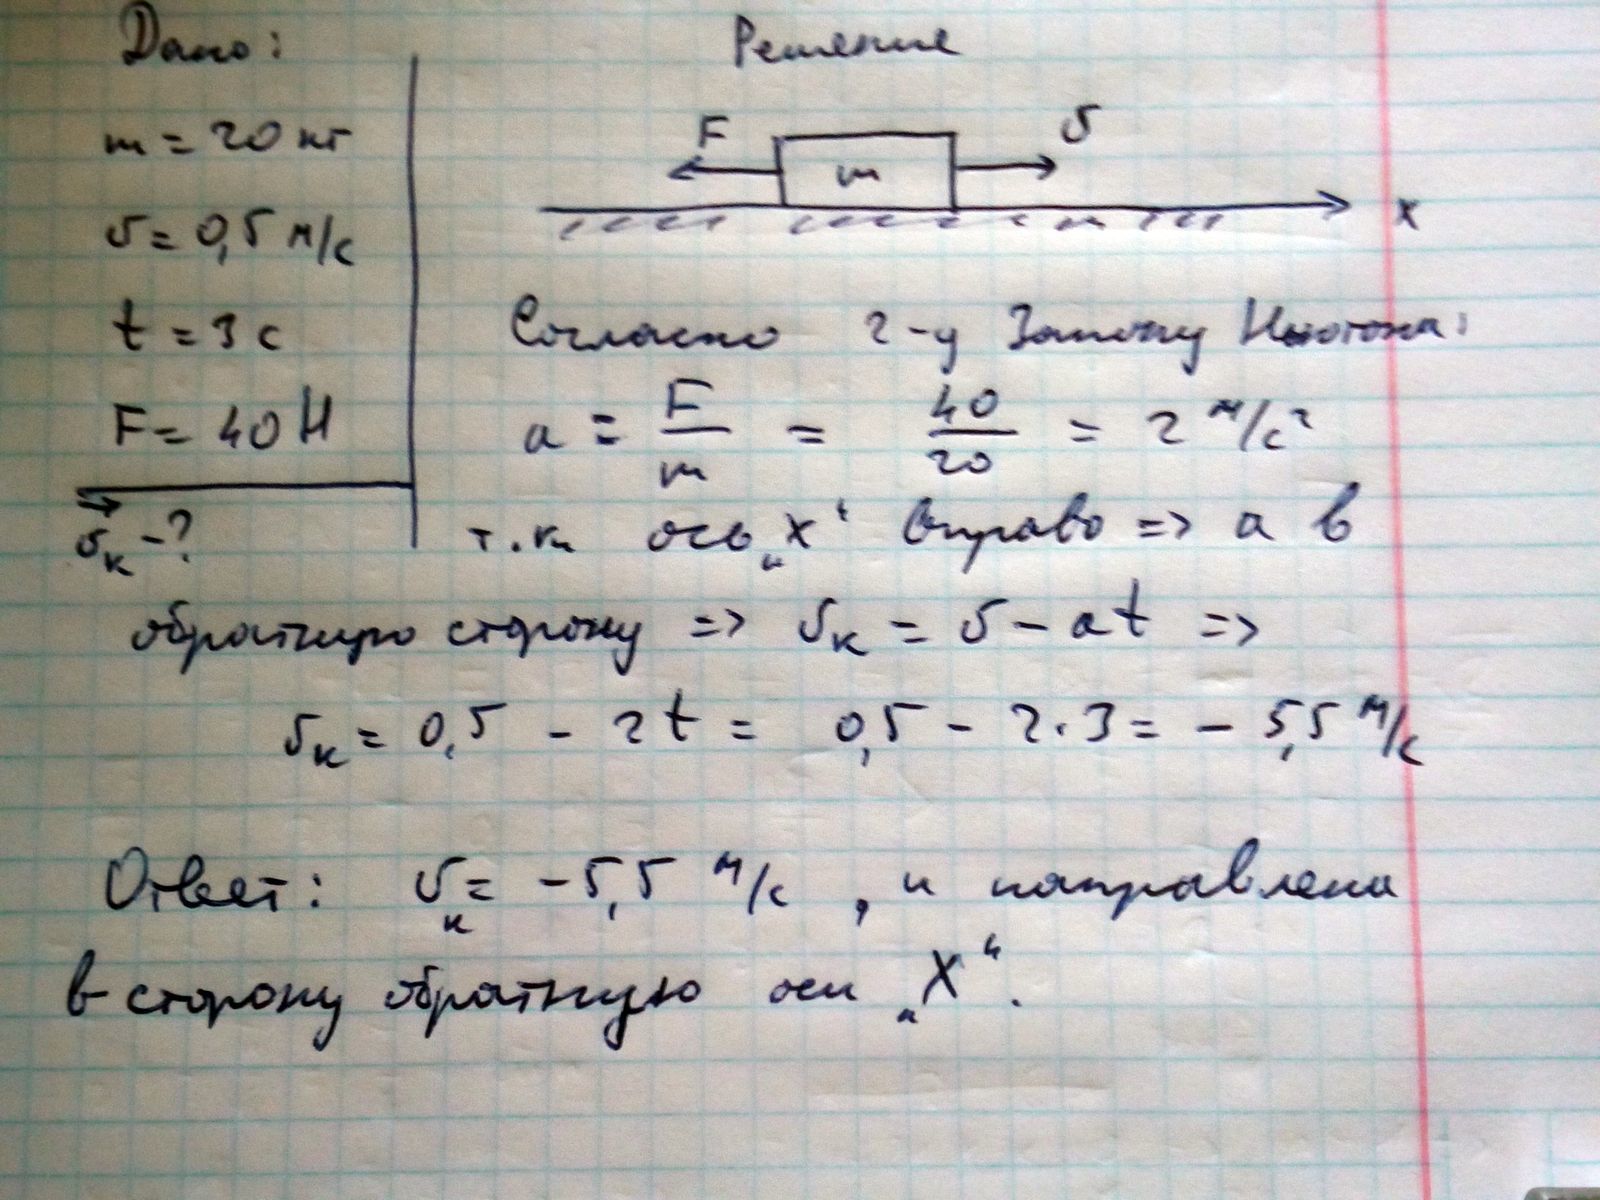 Дано:
m = 20 кг
v = 0,5 м/с
t = 3 с
F = 40 Н
v⃗к - ?
Решение
F
m
v
x
Согласно 2-у Закону Ньютона:
a = F/m = 40/20 = 2 м/с²
т.к. ось „X“ вправо => a в
обратную сторону => vк = v - at =>
vк = 0,5 - 2t = 0,5 - 2·3 = - 5,5 м/с
Ответ: vк = -5,5 м/с, и направлена
в сторону обратную оси „X“.